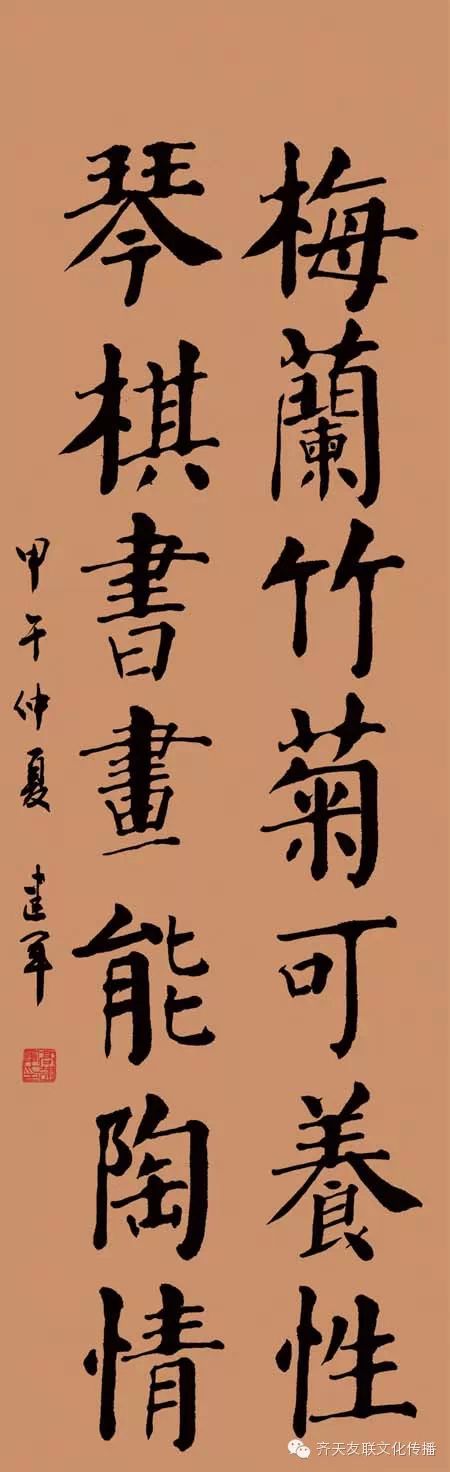 梅蘭竹菊可養性
琴棋書畫能陶情
甲午仲夏 建軍
齐天友联文化传播